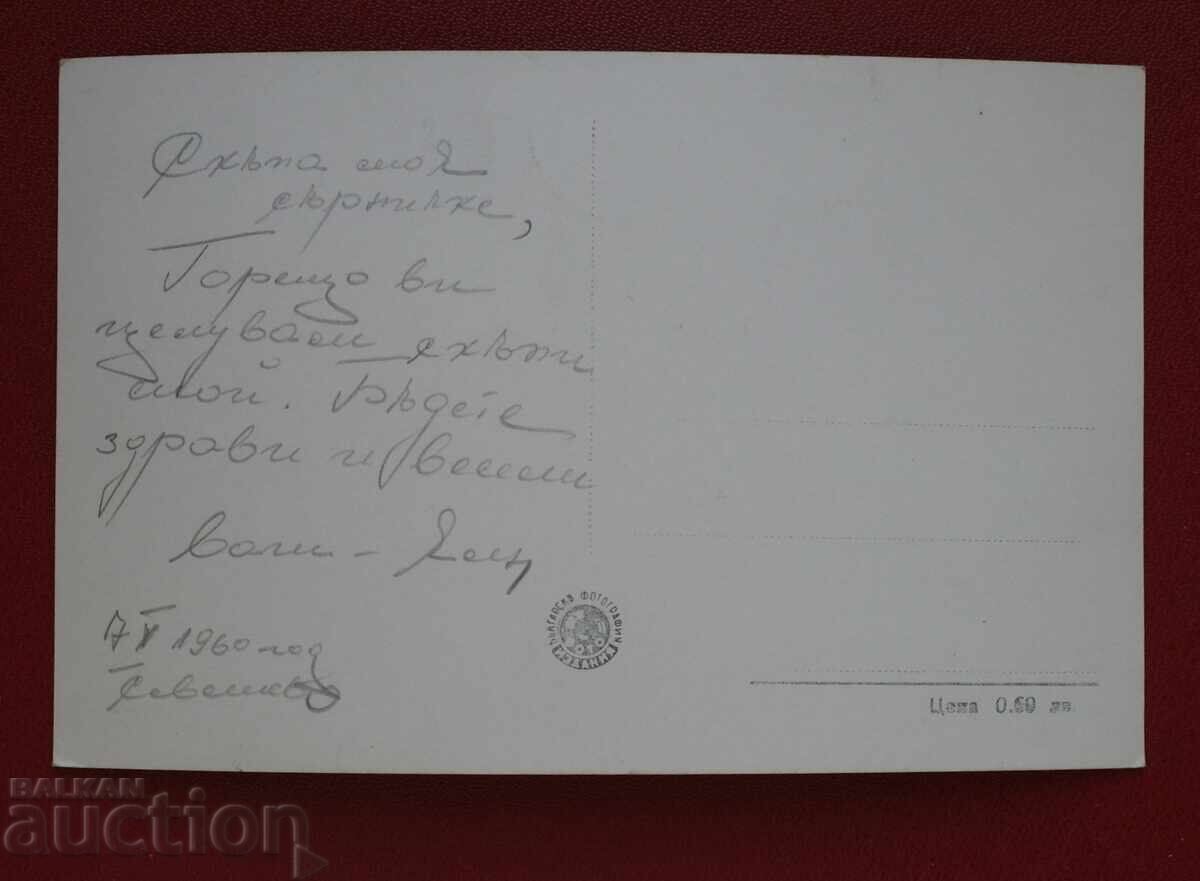 Скъпа моя
сърничке,
Горещо ви
целувам скъпи
мой. Бъдете
здрави и весели
ваш -
7 V 1960 год
БЪЛГАРСКА ФОТОГРАФИЯ
ИЗДАНИЯ
Цена 0.60 лв.
BALKAN
auction